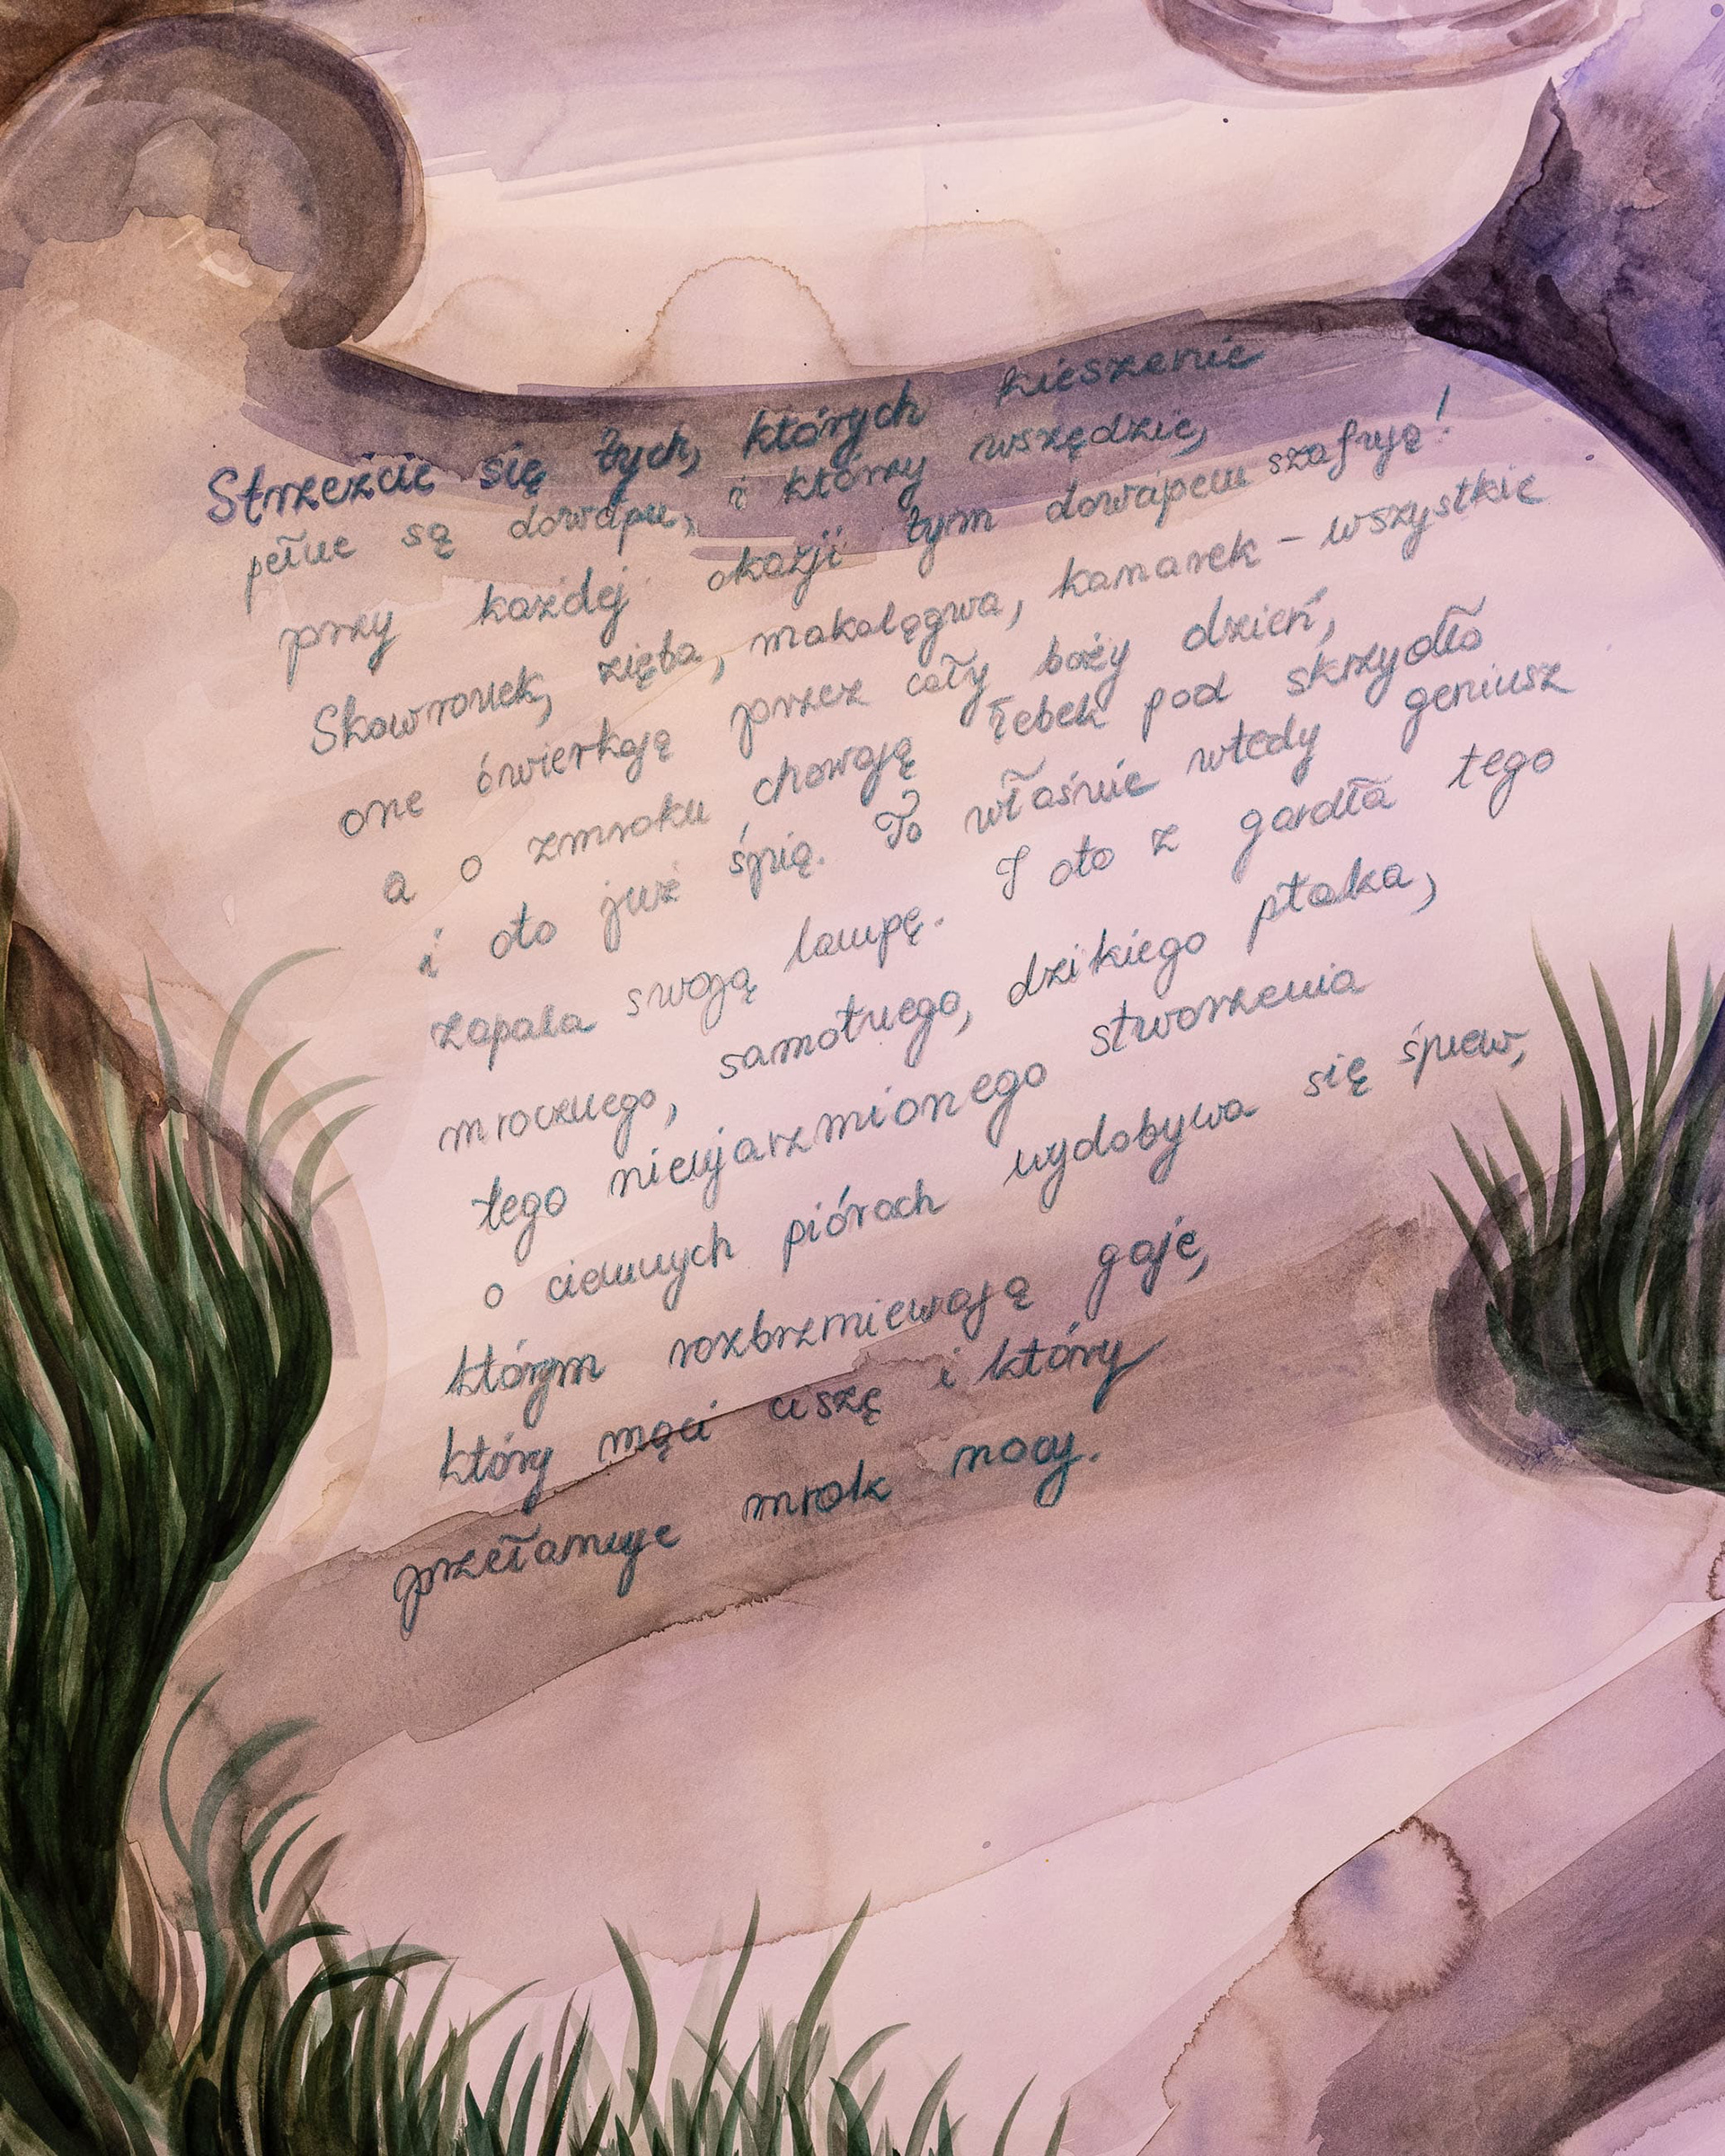 Strzeżcie się tych, których kieszenie
pełne są dowcipu, i którzy wszędzie,
przy każdej okazji tym dowcipem szafują!
Skowronek, zięba, makolągwa, kanarek - wszystkie
one ćwierkają przez cały boży dzień,
a o zmroku chowają łebek pod skrzydło
i oto już śpią. To właśnie wtedy geniusz
zapala swoją lampę. I oto z gardła tego
mrocznego, samotnego, dzikiego ptaka,
tego nieujarzmionego stworzenia
o ciemnych piórach wydobywa się śpiew,
którym rozbrzmiewają gaje,
który mąci ciszę i który
przełamuje mrok nocy.